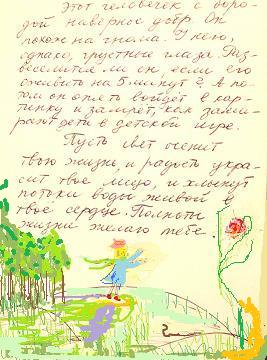 Этот человечек с боро-
дой наверное добр. Он
похож на гнома. У него,
однако, грустные глаза. Раз-
веселится ли он, если его
оживить на 5 минут? А по-
том он опять войдёт в кар-
тинку и замрёт, как зами-
рают дети в детской игре.
Пусть свет осенит
твою жизнь, и радость укра-
сит твоё лицо, и хлынут
потоки воды живой в
твоё сердце. Полноты
жизни желаю тебе.